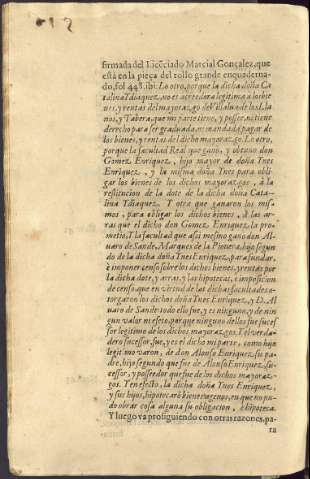 firmada del Licẽciado Marcial Gonçalez, que
está en la pieça del rollo grande enquaderna-
do, fol. 448. ibi: Lo otro, porque la dicha doña Ca
talina Ydiaquez, no es acreedora legitima a los bie
nes, y rentas del mayorazgo de Villalua de los Lla
nos, y Tabera, que mi parte tiene, y possee, ni tiene
derecho para ser graduada, ni mandada pagar de
los bienes, y rentas del dicho mayorazgo. Lo otro,
porque la facultad Real que ganò, y obtuuo don
Gomez Enriquez, hijo mayor de doña Ynes
Enriquez, y la misma doña Ynes para obli-
gar los bienes de los dichos mayorazgos, à la
restitucion de la dote de la dicha doña Cata-
lina Ydiaquez. Y otra que ganaron los mis-
mos, para obligar los dichos bienes, à las ar-
ras que el dicho don Gomez Enriquez, la pro-
metio. Y la facultad que assi mesmo ganò don Al
uaro de Sande, Marques de la Piouera, hijo segun
do de la dicha doña Ynes Enriquez, para fundar,
è imponer censo sobre los dichos bienes, y rentas por
la dicha dote, y arras, y las hipotecas, è imposicion
de censo que en virtud de las dichas facultades o-
torgaron los dichos doña Ynes Enriquez, y D. Al
uaro de Sande todo ello fue, y es ninguno, y de nin
gun valor ni efeto, porque ninguno dellos fue sucef
sor legitimo de los dichos mayorazgos. Y el verda-
dero sucessor, fue, y es el dicho mi parte, como hijo
legitimo varon, de don Alonso Enriquez su pa-
dre, hijo segundo que fue de Alonso Enriquez, su-
cessor, y posseedor que fue de los dichos mayoraz-
gos. Y en efecto, la dicha doña Ynes Enriquez,
y sus hijos, hipotecarõ bienes agenos, en que no pu-
do obrar cosa alguna su obligacion, è hipoteca.
Y luego va prosiguiendo con otras razones, pa-
ra